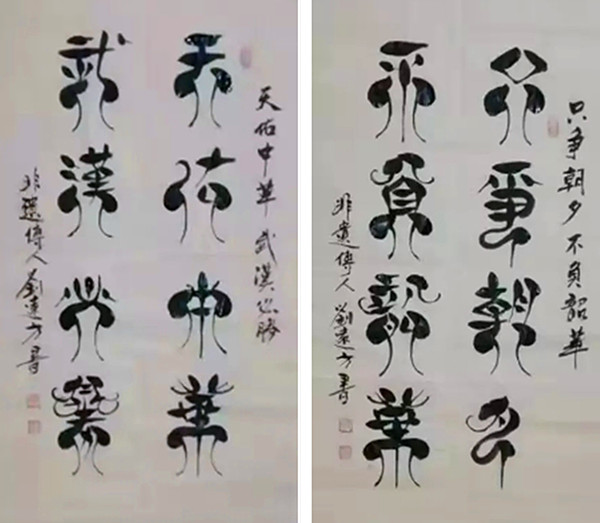 天佑中華 武漢必勝
天佑中華
武漢必勝
非遺傳人劉遠方書
只争朝夕 不負韶華
只爭朝夕
不負韶華
非遺傳人劉遠方書